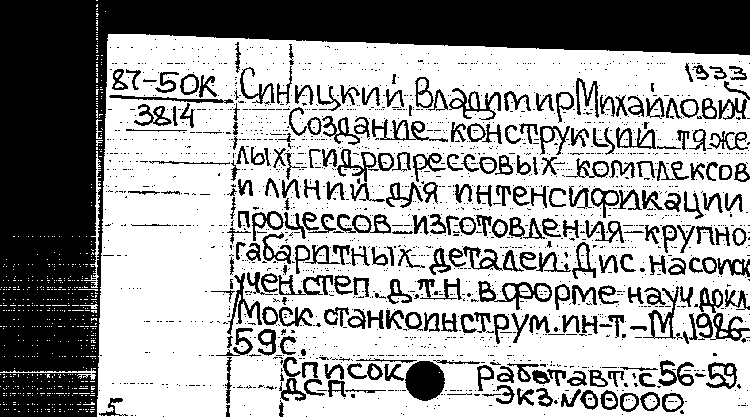 1933
87-5ОК
3814
Синицкий, Владимир Михайлович
Создание конструкций тяже-
лых гидропрессовых комплексов
и линий для интенсификации
процессов изготовления крупно-
габаритных деталей: Дис. на соиск.
учен. степ. д.т.н. в форме науч. докл.
Моск. станкоинструм. ин-т. - М., 1986.
59с.
Список работ авт.: с.56-59.
ДСП. Экз. N00000
5